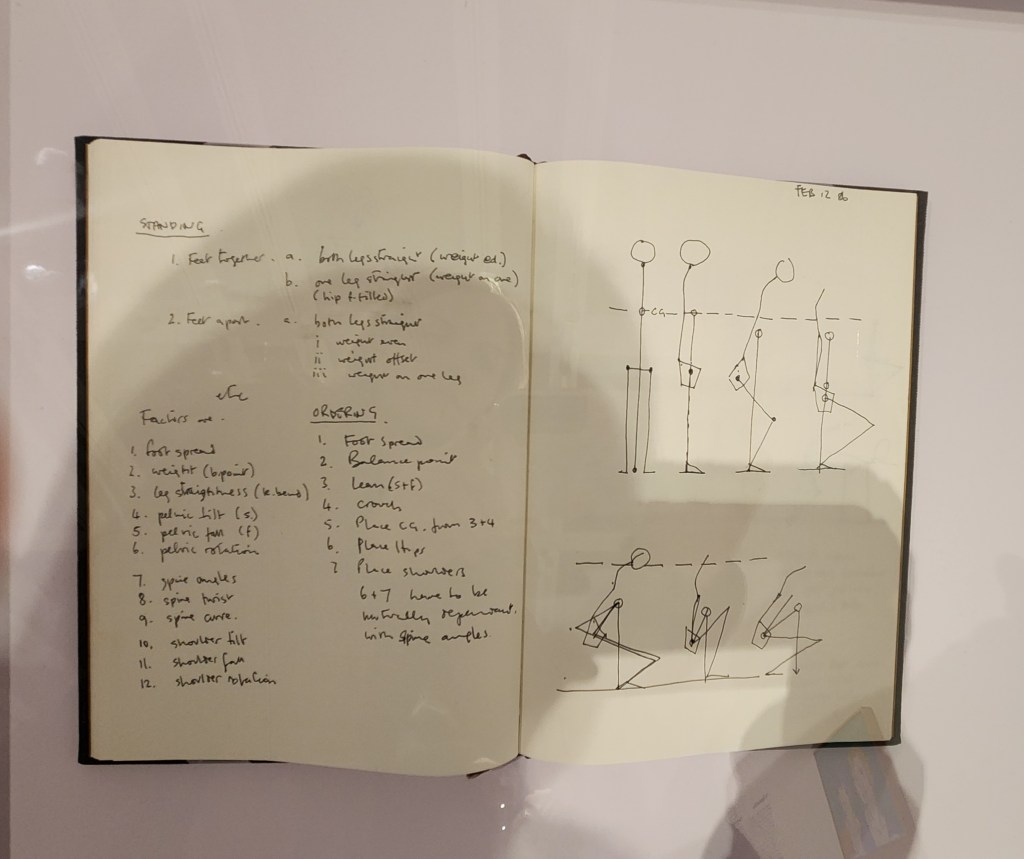 STANDING
1. Feet together. a. both legs straight (weight ed.)
b. one leg straight (weight on one)
(hip tilted)
2. Feet apart. a. both legs straight
i weight even
ii weight offset
iii weight on one leg
etc
Factors are.
1. foot spread
2. weight (b.point)
3. leg straightness (k.bend)
4. pelvic tilt (s)
5. pelvic fall (f)
6. pelvic rotation
7. spine angles
8. spine twist
9. spine curve.
10. shoulder tilt
11. shoulder fall
12. shoulder rotation
ORDERING.
1. Foot spread
2. Balance point
3. Lean (s+f)
4. crouch
5. Place CG. from 3+4
6. Place Hips
7 Place shoulders
6+7 have to be
mutually dependant.
with spine angles.
FEB 12 86
CG